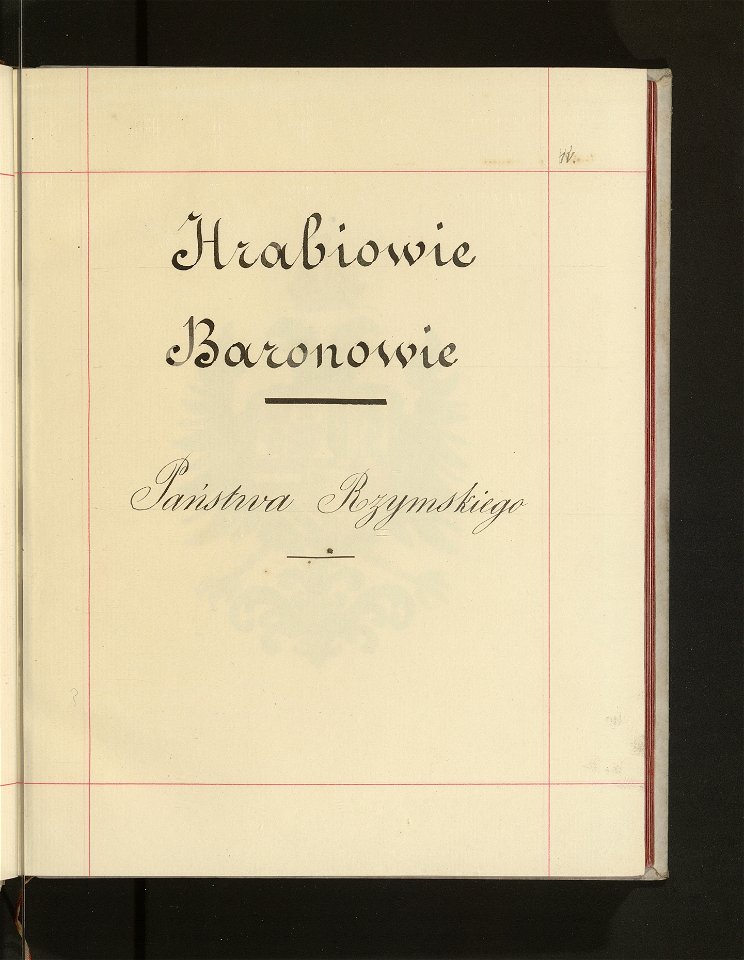 Hrabiowie
Baronowie
Państwa Rzymskiego